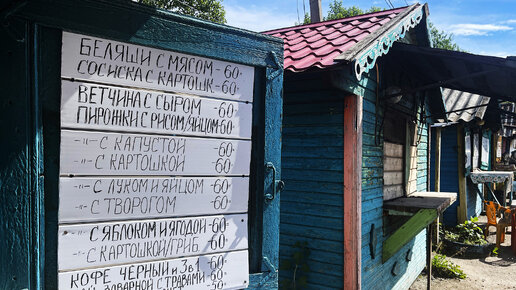 БЕЛЯШИ С МЯСОМ - 60-
СОСИСКА С КАРТОШК - 60-
ВЕТЧИНА С СЫРОМ - 60-
ПИРОЖКИ С РИСОМ/ЯЙЦОМ 60-
-"- С КАПУСТОЙ 60-
-"- С КАРТОШКОЙ 60-
-"- С ЛУКОМ И ЯЙЦОМ 60-
-"- С ТВОРОГОМ - 60-
-"- С ЯБЛОКОМ И ЯГОДОЙ 60-
-"- С КАРТОШКОЙ/ГРИБ. 60-
КОФЕ ЧЁРНЫЙ И 3в1 60-
ЗАВАРНОЙ С ТРАВАМИ 60-